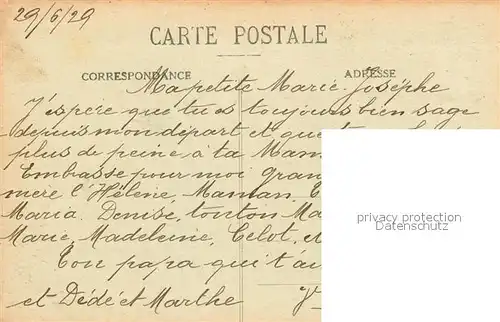 29/6/29
CARTE POSTALE
CORRESPONDANCE
ADRESSE
Ma petite Marie-Josèphe
J'espère que tu es toujours bien sage
depuis mon départ et que tu
plus de peine à ta Mam
Embrasse pour moi gran
mère l'Hélène, Maman
Maria, Denise, tonton Ma
Marie, Madeleine, Celot, et
privacy protection
Datenschutz
Ton papa qui t'ai
et Dédé et Marthe